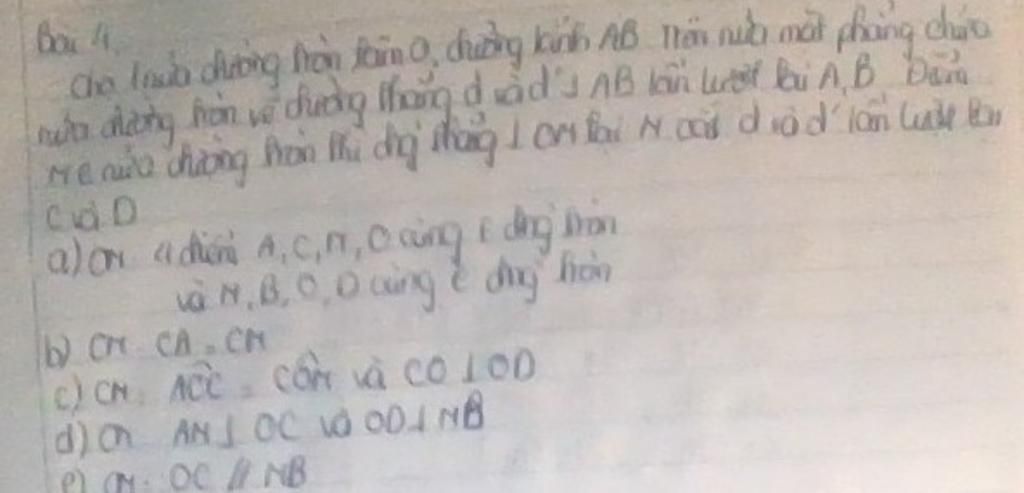 Bài 4.
Cho nửa đường tròn tâm O, đường kính AB Trên nửa mặt phẳng chứa
nửa đường tròn vẽ đường thẳng d và d' ⊥ AB lần lượt tại A, B
M ∈ nửa đường tròn đg thẳng ⊥ OM tại M cắt d và d' lần lượt tại
C và D
a) CM 4 điểm A, C, M, O cùng ∈ đng tròn
và M, B, O, D cùng ∈ đng tròn
b) CM CA = CM
c) CM: CÔM và CO ⊥ OD
d) CM AM ⊥ OC và OD ⊥ MB
e) CM: OC // MB